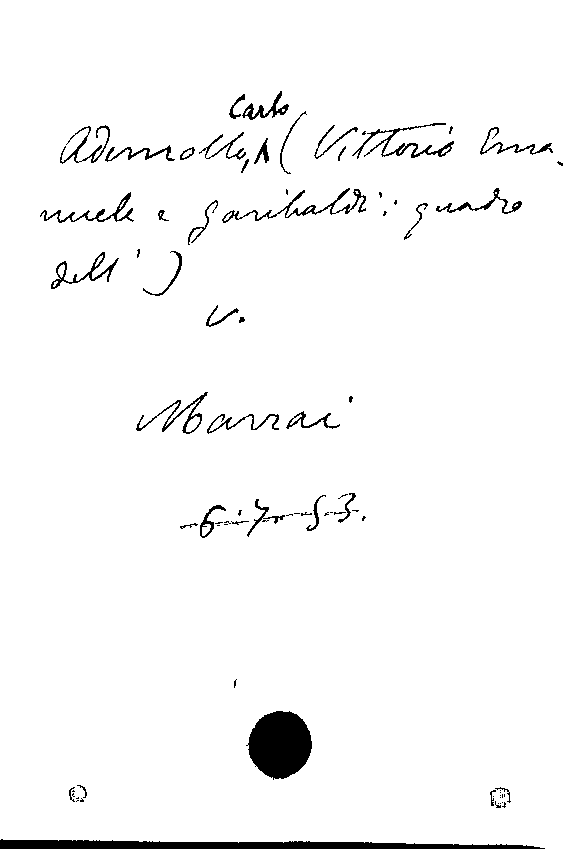 Ademollo, Carlo (Vittorio Ema-
nuele e Garibaldi: quadro
dell')
v.
Marrai
6.7.53.